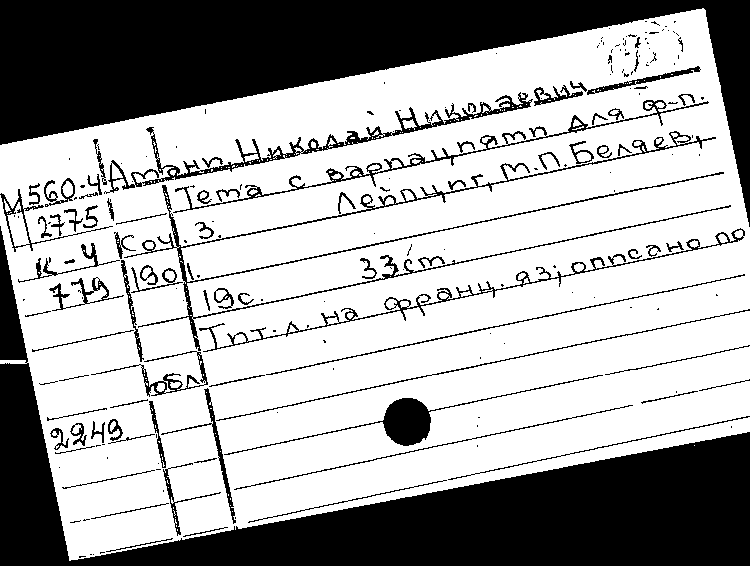 М560-4 Амани, Николай Николаевич
2775 Тема с вариациями для ф-п.
К-4 Соч. 3. Лейпциг, М.П. Беляев,
779 1901.
19с. 33см.
Тит. л. на франц. яз; описано по
обл.
2249.